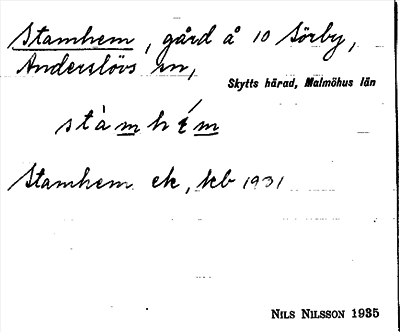 Stamhem, gård å 10 Sörby,
Anderslövs sn,
Skytts härad, Malmöhus län
stàmhém
Stamhem ek, kb 1931
NILS NILSSON 1935